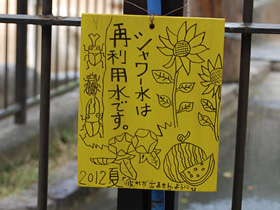 シャワー水は
再利用水です。
2012夏